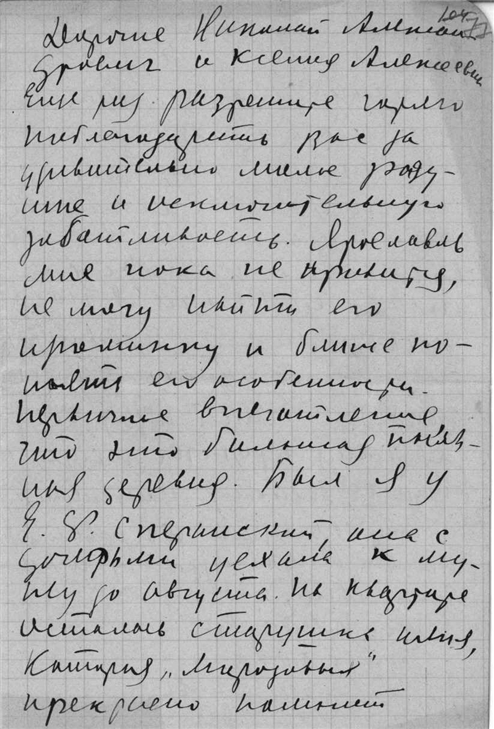 Дорогие Николай Алексан
дрович и Ксения Алексеевна
Еще раз разрешите горячо
поблагодарить вас за
удивительно милое раду-
шие и исключительную
заботливость. Ярославль
мне пока не нравится,
не могу найти его
изюминку и ближе по-
нять его особенности.
Первичное впечатление,
что это большая
ная деревня. Был я у
Е. Ф. Сперанской, она с
дочерьми уехала к му-
жу до августа. На квартире
осталась старушка няня,
которая
прекрасно помнит